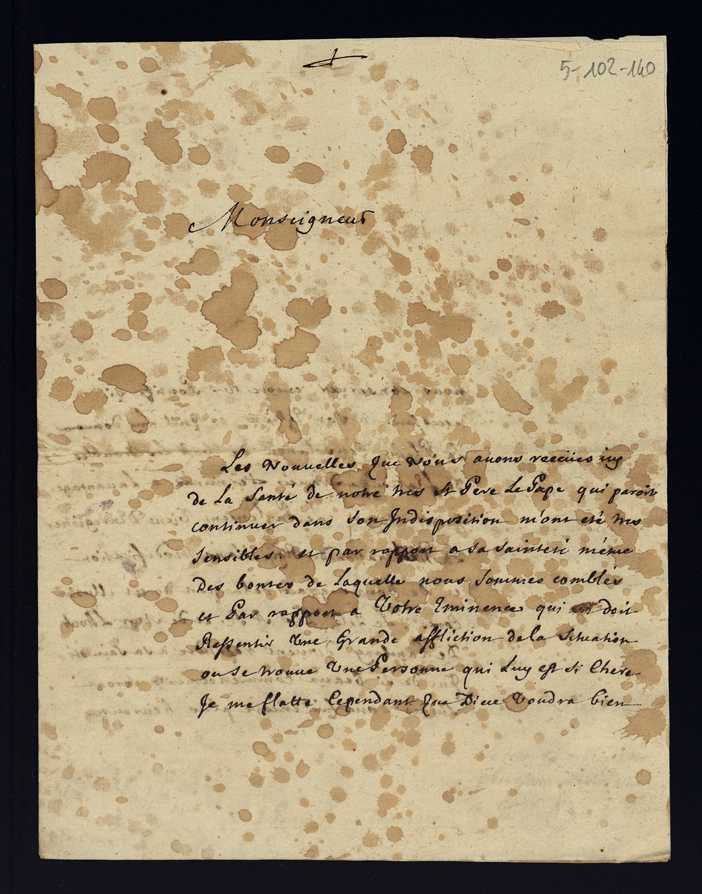 5-102-140
Monseigneur
Les Nouvelles que nous auons receües icy
de La Santé de notre tres St Pere Le Pape qui paroit
continuer dans Son Indisposition m'ont eté tres
Sensibles et par rapport a Sa Sainteté méme
Des bontes de Laquelle nous Sommes comblés
et Par rapport a Votre Eminence qui doit
Ressentir Une Grande affliction de la Situation
ou Se trouue Une Personne qui Luy est Si Chere
Je me flatte Cependant que Dieu Voudra bien